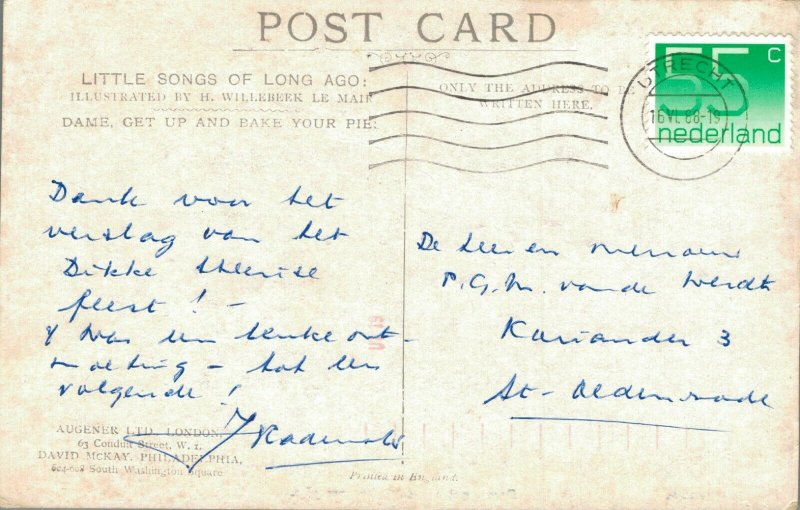 POST CARD
LITTLE SONGS OF LONG AGO:
ILLUSTRATED BY H. WILLEBEEK LE MAIR
DAME, GET UP AND BAKE YOUR PIE:
ONLY THE ADDRESS TO BE
WRITTEN HERE.
55 c
nederland
UTRECHT
16 VI. 88-19
Dank voor het
verslag van het
Dikke
feest! -
was een leuke ont-
moeting - tot een
volgende!
De Heer en mevrouw
P.G.M. van de Werdt
Koriander 3
St-Oedenrode
AUGENER LTD., LONDON,
63 Conduit Street, W. 1.
DAVID McKAY, PHILADELPHIA,
604-608 South Washington Square
Printed in England.